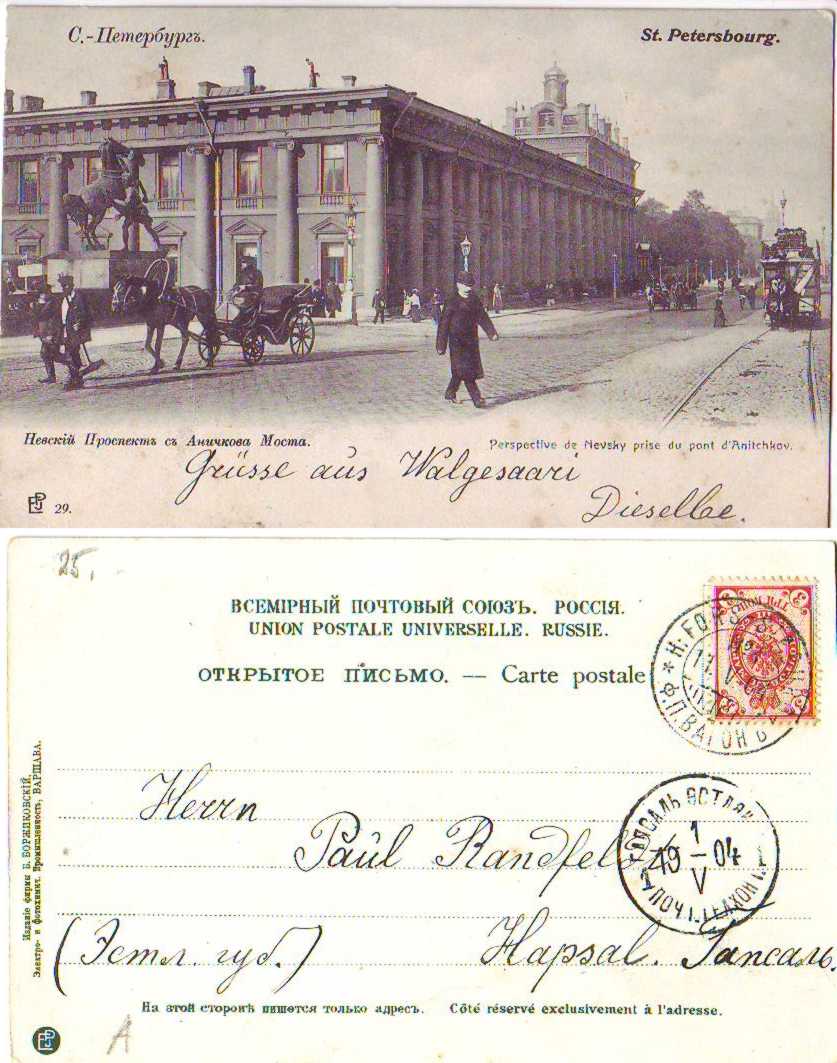 С.-Петербургъ.
St. Petersbourg.
Невскій Проспектъ съ Аничкова Моста.
Perspective de Nevsky prise du pont d'Anitchkov.
Grüsse aus Walgesaari
Dieselbe.
29.
25.
ВСЕМІРНЫЙ ПОЧТОВЫЙ СОЮЗЪ. РОССІЯ.
UNION POSTALE UNIVERSELLE. RUSSIE.
ОТКРЫТОЕ ПИСЬМО. — Carte postale
Ф.П.ВАГОН
Herrn
Paul Randfeldt
ГАПСАЛЬ ЭСТЛЯН
1
19 – 04
V
(Эстл. губ.) Hapsal. Гапсаль.
Изданіе фирмы Б. ВОРЖИКОВСКІЙ,
Электро- и фотохимич. Промышленность, ВАРШАВА.
На этой сторонѣ пишется только адресъ. Côté réservé exclusivement à l'adresse.
A